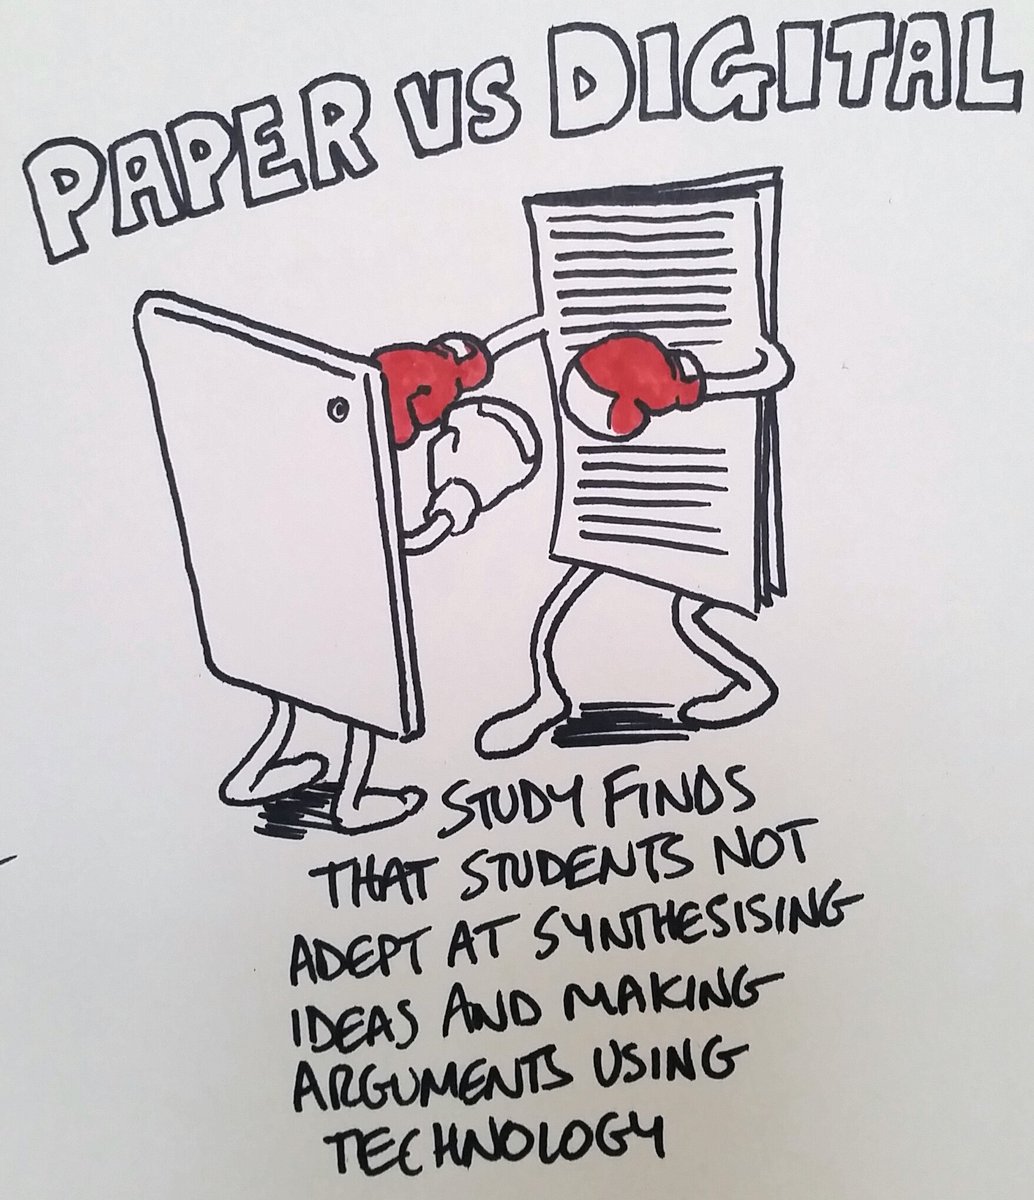 PAPER VS DIGITAL
STUDY FINDS
THAT STUDENTS NOT
ADEPT AT SYNTHESISING
IDEAS AND MAKING
ARGUMENTS USING
TECHNOLOGY